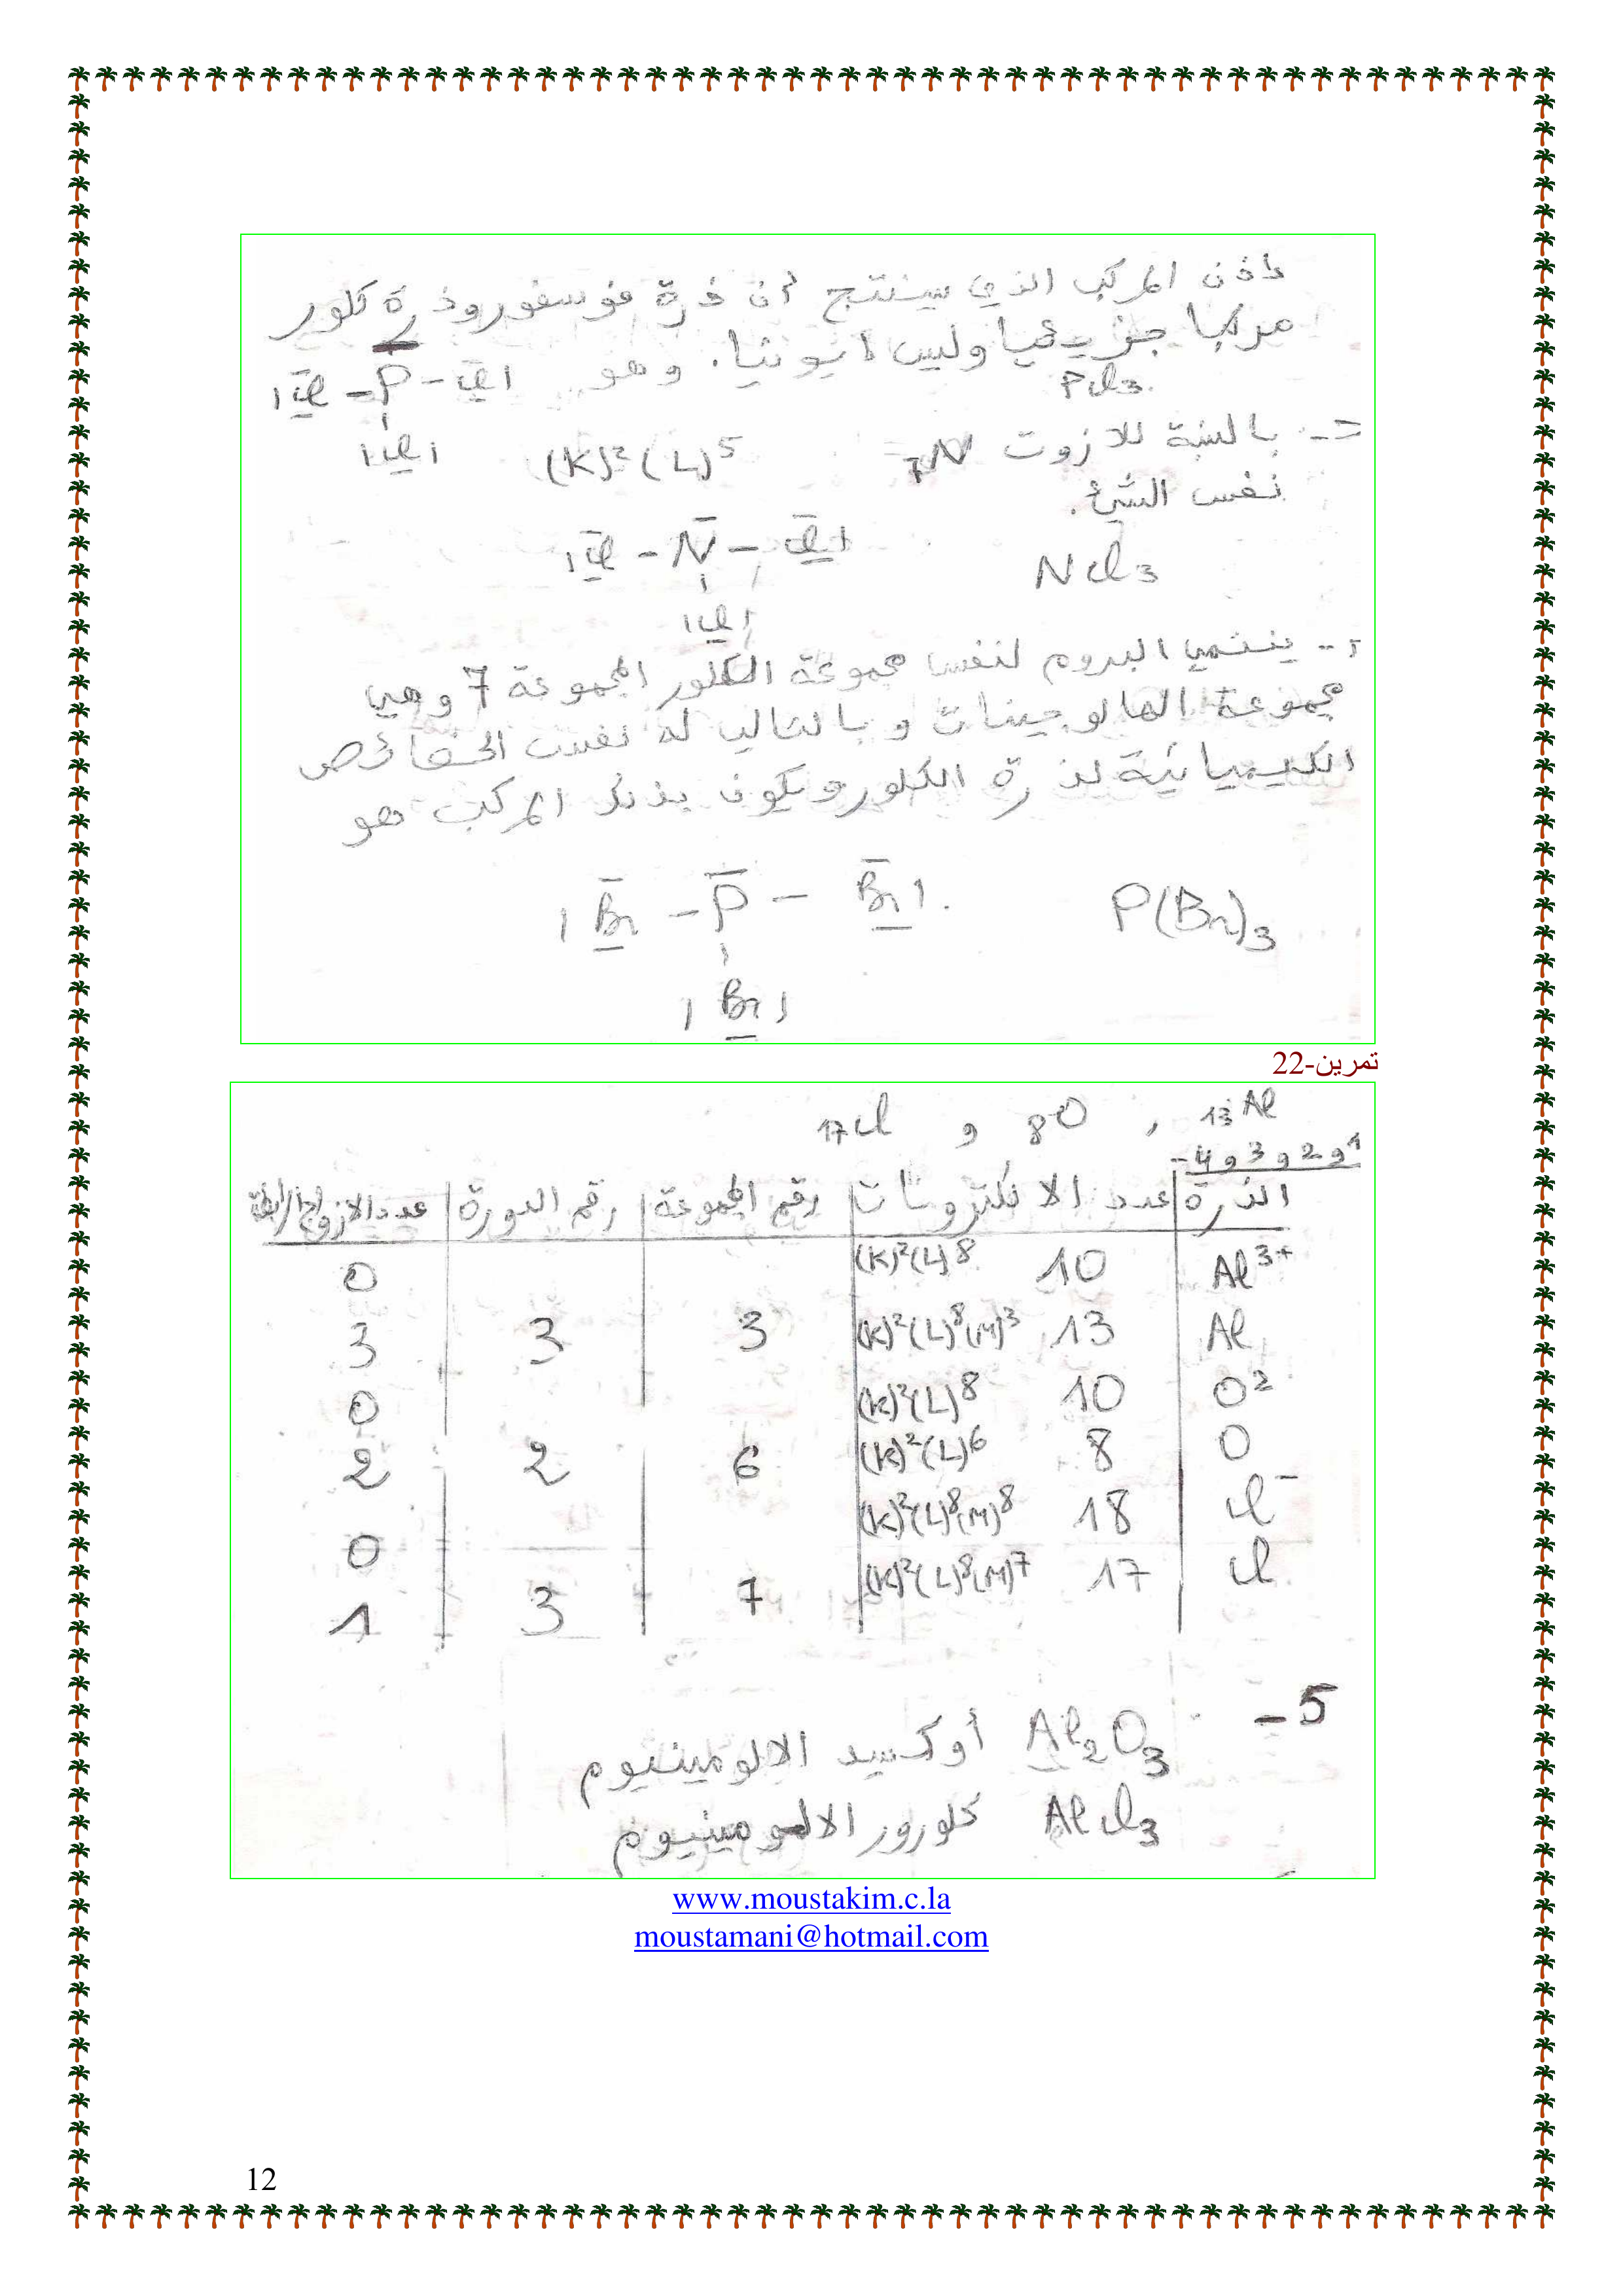 اذن المركب الذي سينتج من ذرة فوسفور وذرة كلور
مركبا جزيئيا وليس ايونيا. وهو PCl3.
|Cl - P - Cl|
|Cl|
ـ بالنسبة للازوت 7N (K)²(L)⁵
نفس الشيئ.
NCl3 |Cl - N - Cl|
|Cl|
ـ ينتمي البروم لنفس مجموعة الكلور المجموعة 7 وهي
مجموعة الهالوجينات وبالتالي له نفس الخصائص
الكيميائية لذرة الكلور ويكون بذلك المركب هو
P(Br)3 |Br - P - Br|.
|Br|
تمرين-22
13Al , 8O و 17Cl
1 و 2 و 3 و 4-
الذرة | عدد الالكترونات | رقم المجموعة | رقم الدورة | عدد الازواج الرابطة
Al³⁺ 10 (K)²(L)⁸ 0
Al 13 (K)²(L)⁸(M)³ 3 3 3
O² 10 (K)²(L)⁸ 0
O 8 (K)²(L)⁶ 6 2 2
Cl⁻ 18 (K)²(L)⁸(M)⁸ 0
Cl 17 (K)²(L)⁸(M)⁷ 7 3 1
5 -
Al2O3 أوكسيد الالومينيوم
AlCl3 كلورور الالومينيوم
www.moustakim.c.la
moustamani@hotmail.com
12